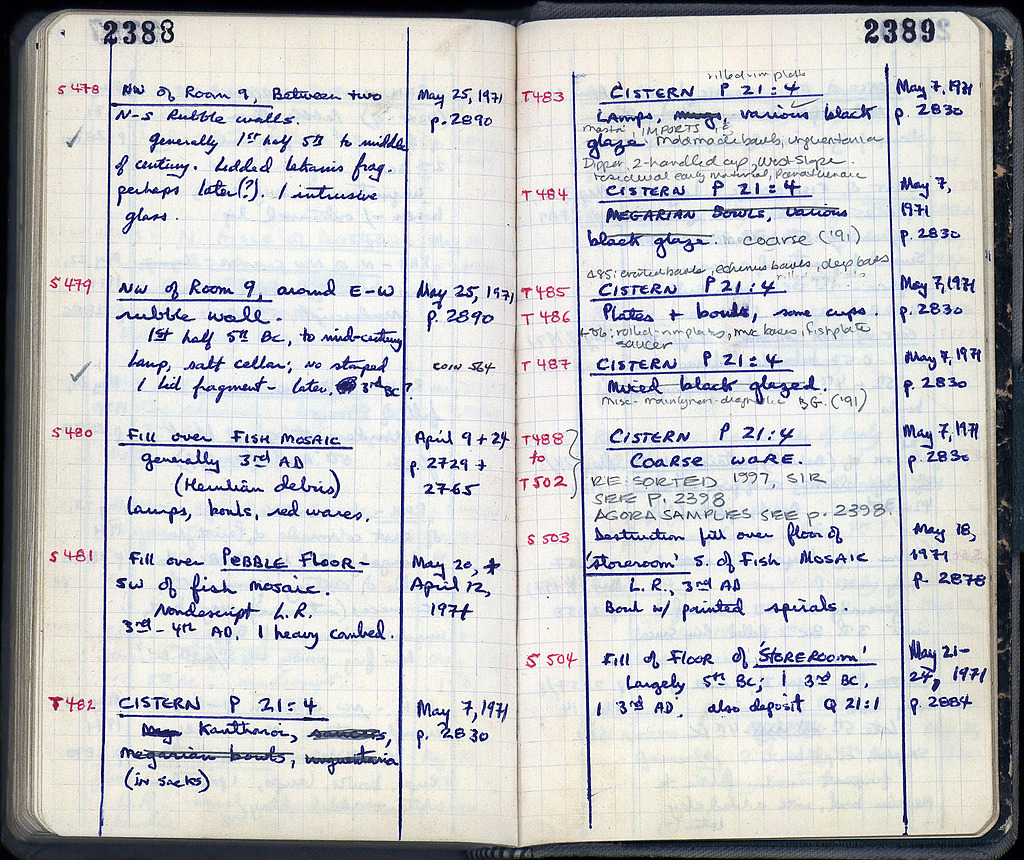 2388
S 478 NW of Room 9, Between two May 25, 1971
N-S Rubble walls. p. 2890
generally 1st half 5th to middle
of century. Lidded lekanis frag.
perhaps later(?). 1 intrusive
glass.
S 479 NW of Room 9, around E-W May 25, 1971
rubble wall. p. 2890
1st half 5th BC, to mid-century
Lamp, salt cellar; no stamped coin 564
1 lid fragment - later, 3rd BC?
S 480 Fill over FISH MOSAIC April 9 + 24
generally 3rd AD p. 2729 +
(Herulian debris) 2765
Lamps, bowls, red wares.
S 481 Fill over PEBBLE FLOOR - May 20,
SW of fish mosaic. April 12,
Nondescript L.R. 1971
3rd - 4th AD. 1 heavy combed.
T 482 CISTERN P 21:4 May 7, 1971
Kantharoi, saucers, p. 2830
megarian bowls, unguentaria
(in sacks)
2389
rilled-rim plates
T 483 CISTERN P 21:4 May 7, 1971
Lamps, mugs, various black p. 2830
IMPORTS,
glaze. Moldmade bowls, unguentaria
Dipper, 2-handled cup, West Slope.
residual early material, Panathenaic
T 484 CISTERN P 21:4 May 7,
MEGARIAN BOWLS, various 1971
black glaze. coarse ('91) p. 2830
485: bowls, echinus bowls, deep bowls
T 485 CISTERN P 21:4 May 7, 1971
T 486 Plates + bowls, some cups. p. 2830
486: rolled-rim plates, misc bases, fishplate
saucer
T 487 CISTERN P 21:4 May 7, 1971
Mixed black glazed. p. 2830
misc - mainly non-diagnostic BG. ('91)
T 488 CISTERN P 21:4 May 7, 1971
to COARSE WARE. p. 2830
T 502 RE-SORTED 1997, SIR
SEE P. 2398
AGORA SAMPLES SEE p. 2398
S 503 Destruction fill over floor of May 18,
'storeroom' S. of Fish MOSAIC 1971
L.R., 3rd AD p. 2878
Bowl w/ painted spirals.
S 504 Fill of Floor of 'STOREROOM' May 21-
Largely 5th BC; 1 3rd BC, 24, 1971
1 3rd AD. also deposit Q 21:1 p. 2884